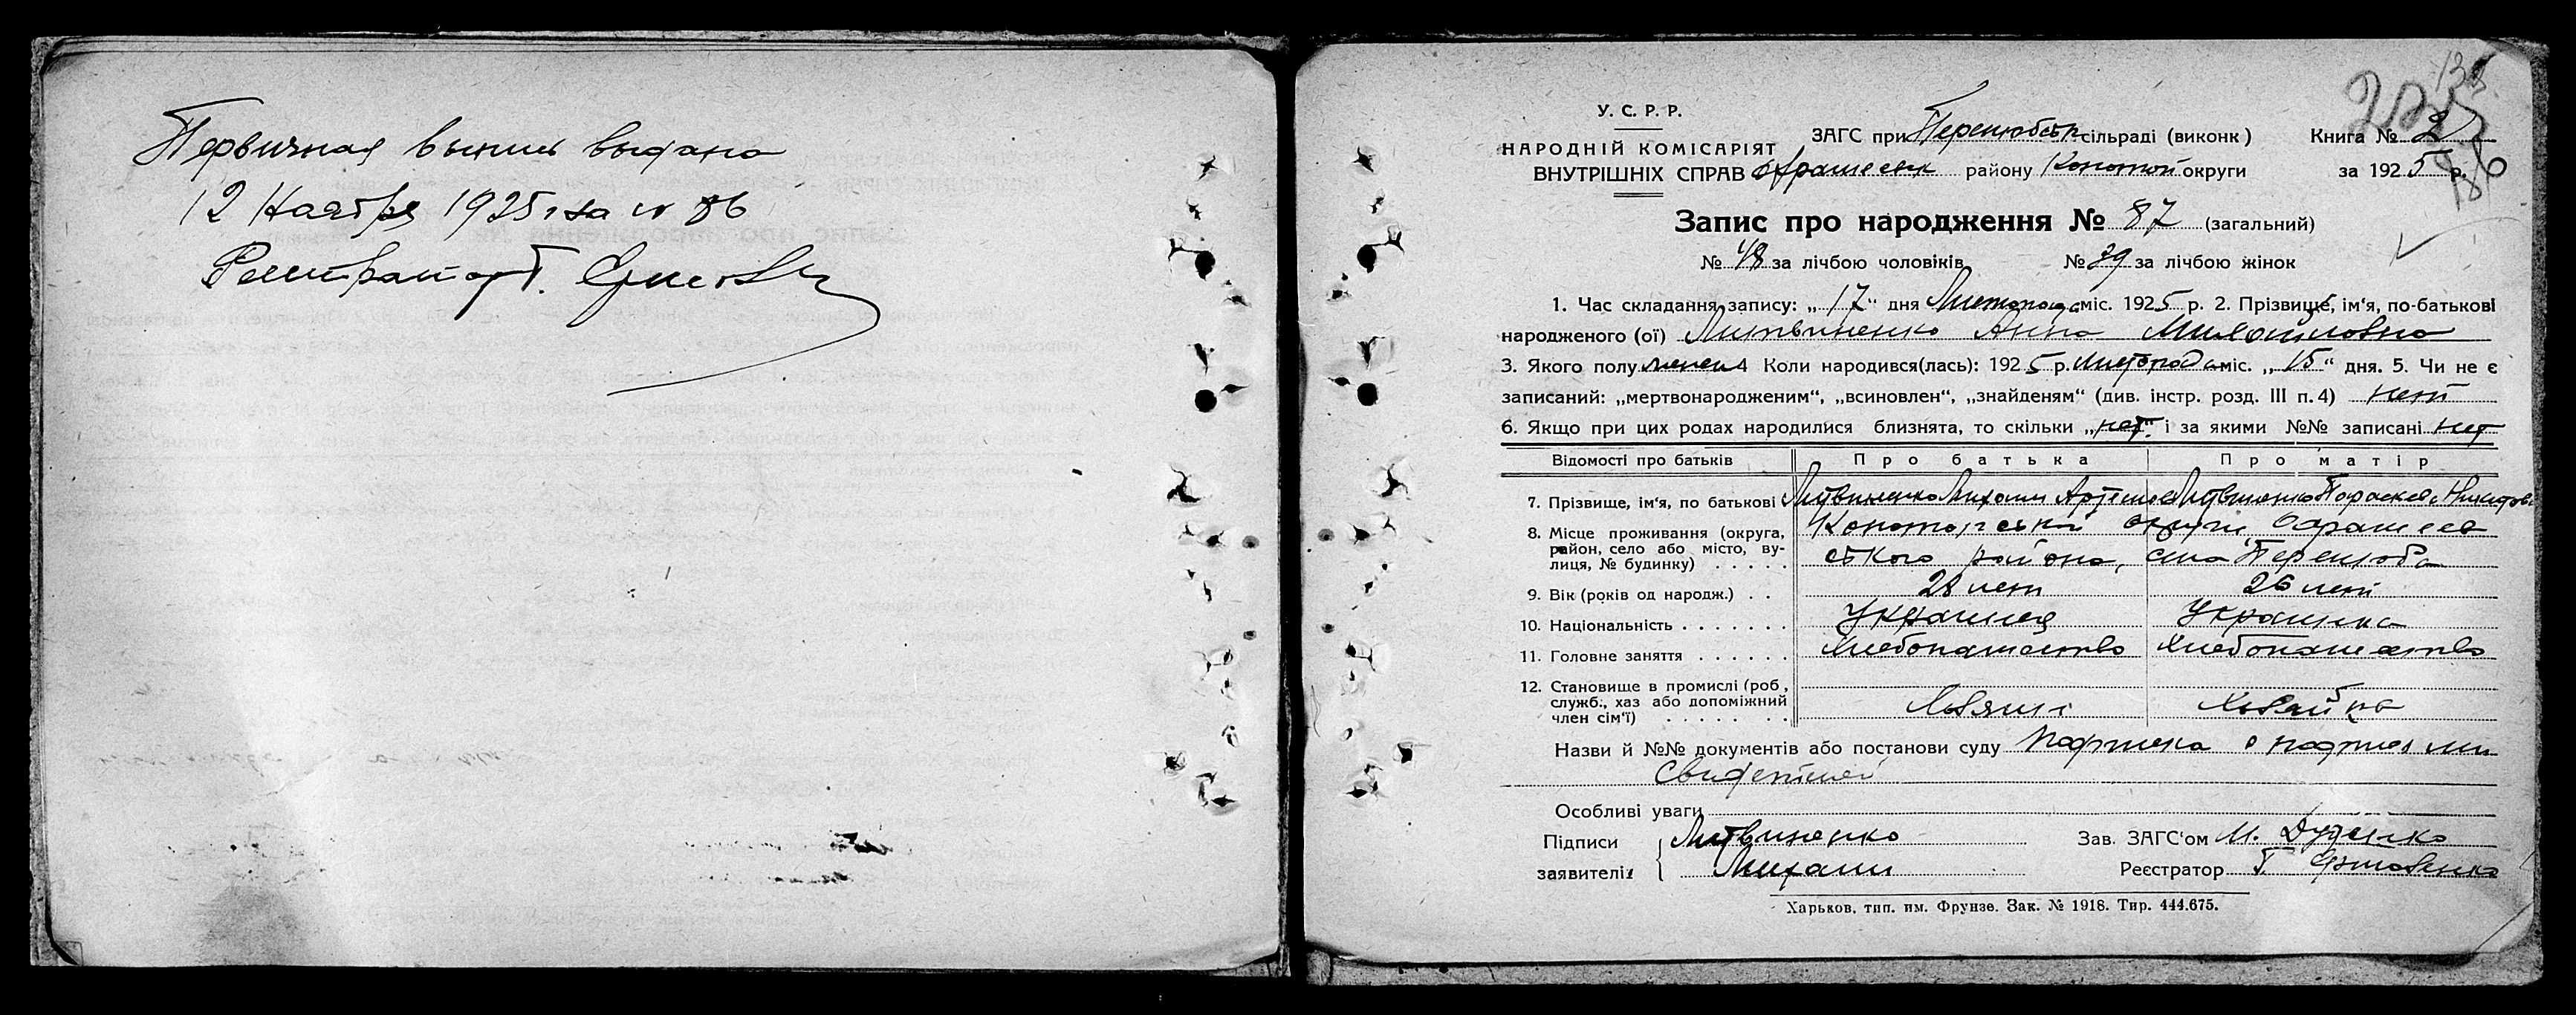 Первичная выпись выдана
12 Ноября 1925 г за № 86
Регистратор Г.
У. С. Р. Р.
НАРОДНІЙ КОМІСАРІЯТ
ВНУТРІШНІХ СПРАВ
ЗАГС при Перелюбськ сільраді (виконк)
району Конотоп округи
Книга № 2
за 1925 р.
Запис про народження № 87 (загальний)
№ 48 за лічбою чоловіків № 39 за лічбою жінок
1. Час складання запису: „17“ дня Листопада міс. 1925 р. 2. Прізвище, ім'я, по-батькові
народженого (ої) Литвиненко Анна Михайловна
3. Якого полу женск 4 Коли народився(лась): 1925 р. листопада міс. „15“ дня. 5. Чи не є
записаний: „мертвонародженим“, „всиновлен“, „знайденям“ (див. інстр. розд. III п. 4) нет
6. Якщо при цих родах народилися близнята, то скільки „нет“ і за якими №№ записані нет
Відомості про батьків Про батька Про матір
7. Прізвище, ім'я, по батькові Литвиненко Михаил Артемов Литвиненко Параскева Никитов
8. Місце проживання (округа, район, село або місто, вулиця, № будинку) Конотопской округи,
ского района, села Перелюба
9. Вік (років од народж.) 28 лет 26 лет
10. Національність Украинец Украинка
11. Головне заняття Хлебопашество Хлебопашество
12. Становище в промислі (роб, служб., хаз або допоміжний член сім'ї) Хозяин Хозяйка
Назви й №№ документів або постанови суду с подписями
свидетелей
Особливі уваги
Підписи заявителів Литвиненко
Михаил
Зав. ЗАГС'ом М. Дуденко
Реєстратор Г.
Харьков, тип. им. Фрунзе. Зак. № 1918. Тир. 444.675.